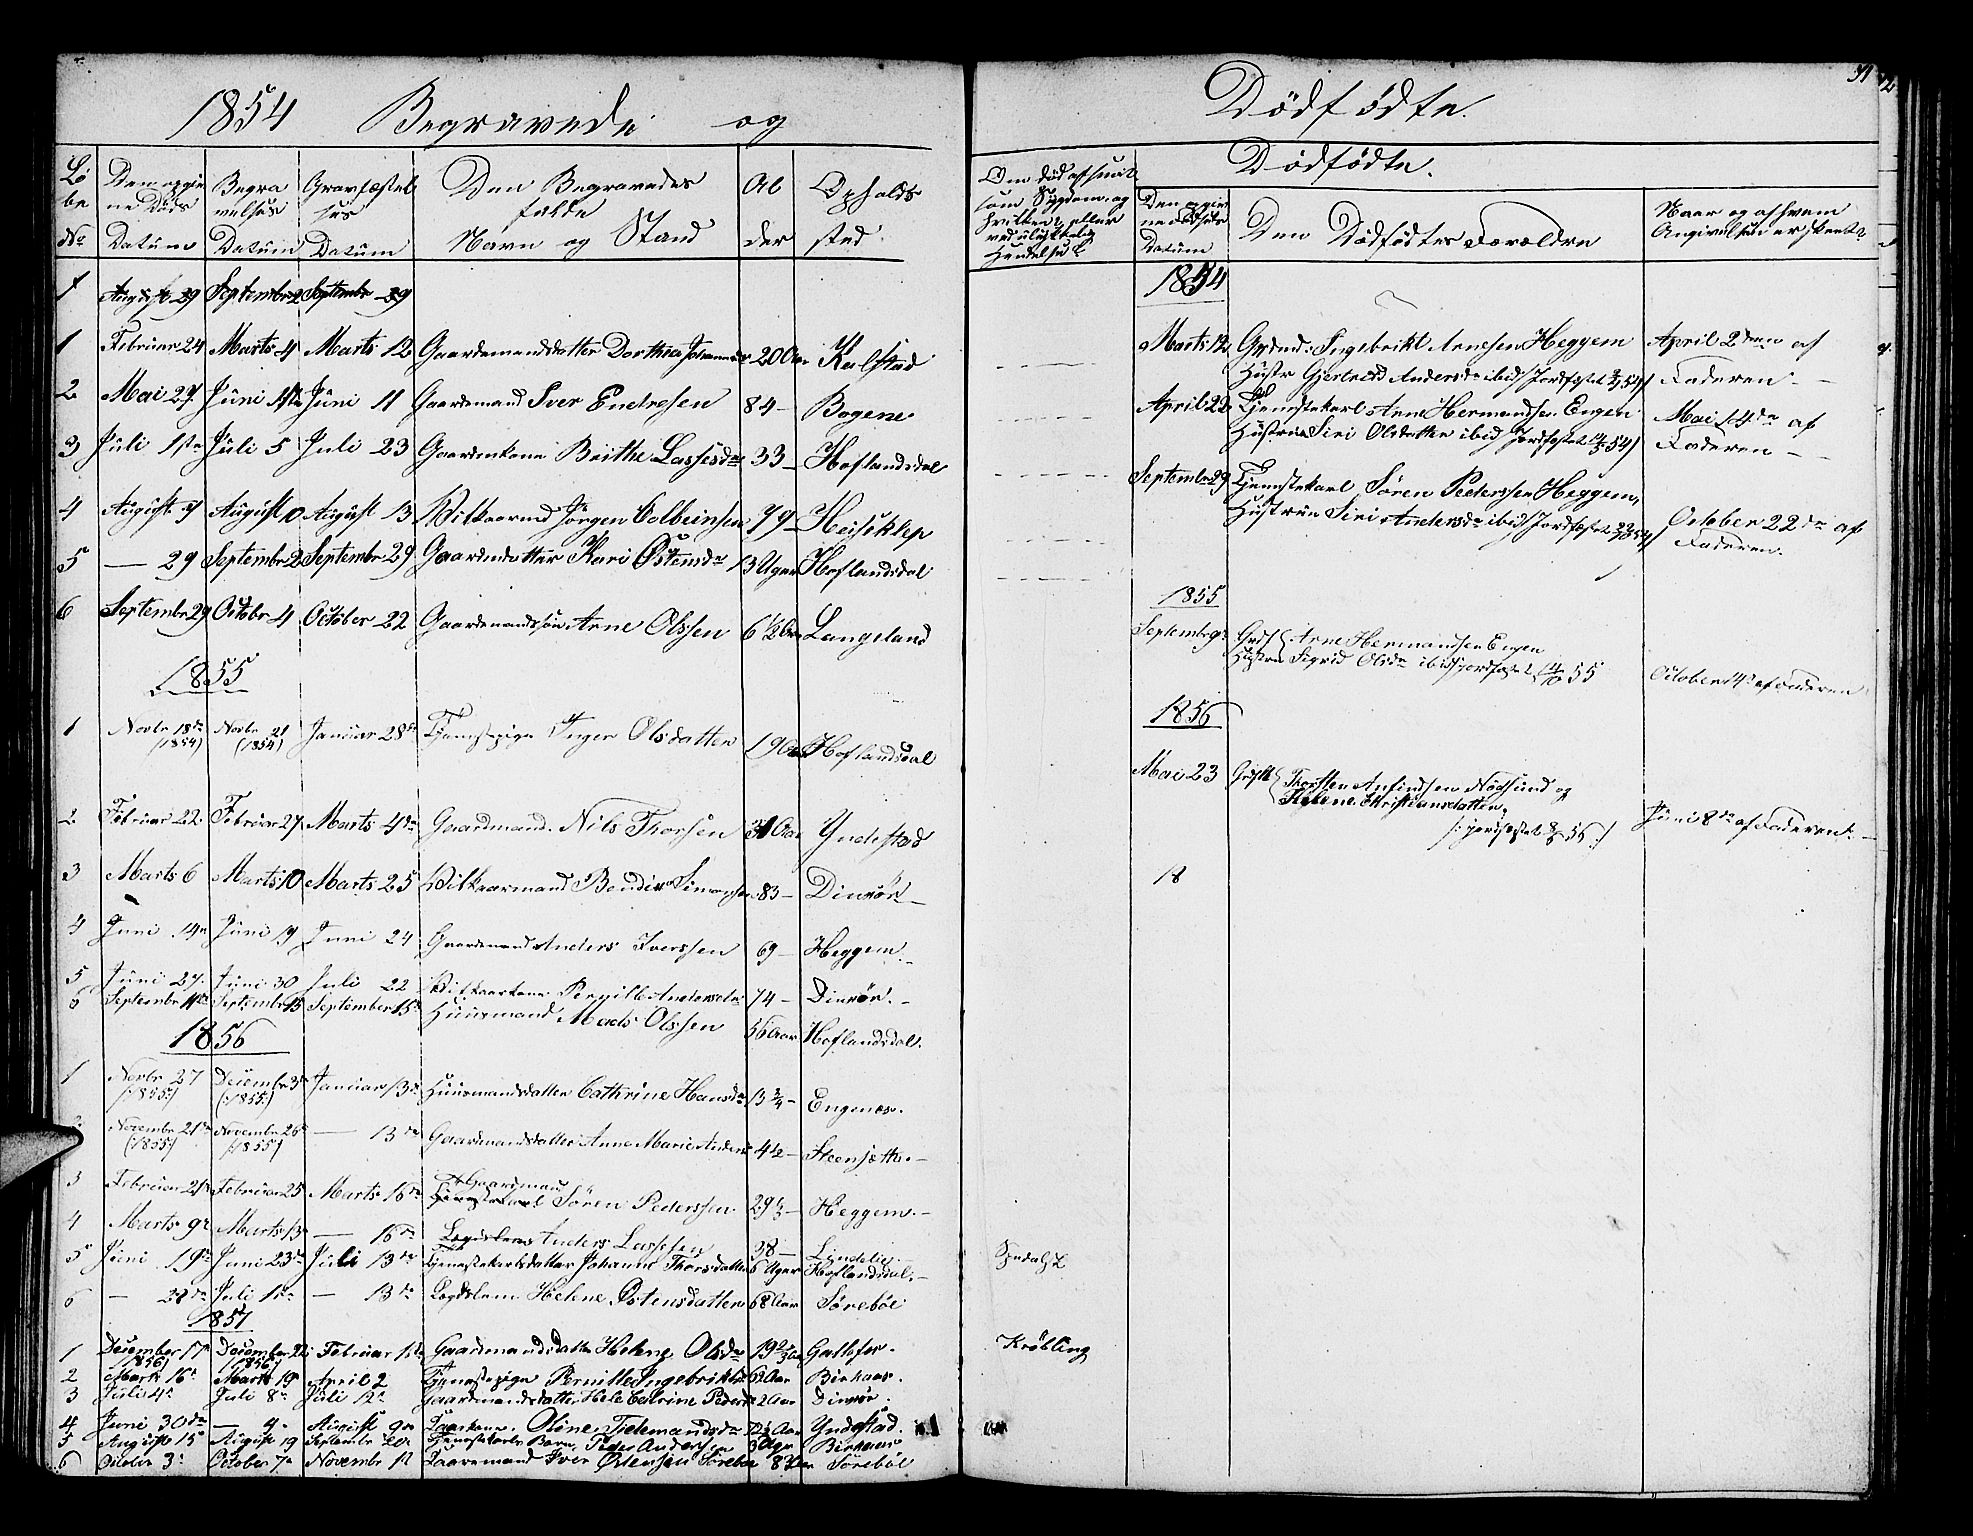 1854 Begravede og
Lö be No
Den opgivne Döds Datum
Begravelses Datum
Gravfæstelses Datum
Den Begravedes fulde Navn og Stand
Alder
Opholdssted
1 August 29 Septembr 2 Septembr 29
1 Februar 24 Marts 4 Marts 12 Gaardmandsdatter Dorthea 20 Aar Kalstad
2 Mai 27 Juni 1ste Juni 11 Gaardmand Iver Endresen 84 – Bogene
3 Juli 1ste Juli 5 Juli 23 Gaardkone Brithe Lassesdr 33 – Hoflandsdal
4 August 7 August 10 August 13 Vilkaarmd Jörgen Colbeinsen 79 – Heiseklep
5 — 29 Septembr 2 Septembr 29 Gaardmdatter Kari Østensdr 13 Uger Hoflandsdal
6 Septembr 29 Octobr 4 October 22 Gaardmandssön Arne Olssen 6 1/2 Aar Langeland
1855
1 Novbr 18de (1854) Novbr 21 (1854) Januar 28de Tjenestpige Inger Olsdatter 19 Aar Hoflandsdal
2 Februar 22 Februar 27 Marts 4de Gaardmand Nils Thorsen 31 Aar Yndestad
3 Marts 6 Marts 10 Marts 25 Vilkaarmand Bendix Simonsen 83 – Dinrör –
4 Juni 14de Juni 19 Juni 24 Gaardmand Anders Iverssen 69 – Heggem –
5 Juni 27 Juni 30 Juli 22 Vilkaarkone Pernille Andersdr 74 – Dinrör –
6 Septembr 11te Septembr 15 September 15de Huusmand Mads Olssen 56 Aar Hoflandsdal.
1856
1 Novbr 27 (:1855:) Decembr 3de (:1855:) Januar 13de Huusmandsdatter Cathrine Hansdr 13 3/4 – Engenes.
2 Novembr 21de (1855) Novembr 26de (:1855:) — 13de Gaardmandsdatter Anne Marie Andersdr 4 1/2 – Steensætte –
3 Februar 21de Februar 25 Marts 16de Gaardmand Sören Pederssen 29 1/3 – Heggem –
4 Marts 9de Marts 13 — 16de Logdslem Anders Lassesen 38 – Lindelie
5 Juni 19de Juni 23de Juli 13de Tjenestekarlsdatter Johanne Thorsdatter 6 Uger Hoflandsdal –
6 — 28de Juli 1ste — 13de Logdslem Helene Østensdatter 68 Aar Sørebøe
1857
1 December 17de (1856) Decembr 22 (1856) Februar 1ste Gaardmandsdatter Helene Olsdr 19 2/3 Aar
2 Marts 16de Marts 19 April 2 Tjenestepige Pernille Ingebrikts 62 Aar Birkaas.
3 Juli 4de Juli 8de Juli 12te Gaardmandsdatter Hele Cathrine Pedersdr 2 Aar Dinrör.
4 Juni 30de — 4 August 9de Oline Tielemandsdr Aar Yndestad.
5 August 15de August 19 Septembr 20de Tjenestekarls Barn Peder Andersen 3 Uger Birkaas
6 October 3de October 7de Novembr 1te Kaarmand Iver Østensen Sørebøe 83 Aar Sørebøe
Dödfödte. 31
Om död af smitsom Sygdom og hvilken; eller ved ulykkelig Hendelse &
Dödfödte.
Den opgivne Födsels Datum
Den Dödfödtes Forældre
Naar og af hvem Angivelsen er skeet
1854
Marts 12 Grdmd: Ingebrikt Arnesen Heggem
Hustr Gjertrud Andersdr ibid /Jordfæstet 2/4 54/
April 2den af Faderen –
April 22 Tjenestekarl Arne Hermandsen Engen
Hustrue Siri Olsdatter ibid Jordfæstet 14/5 54/
Mai 14de af Faderen –
Septembr 29 Tjenestekarl Sören Pederssen Heggem,
Hustrue Siri Andersdr ibid /Jordfæstet 22/10 54/
October 22de af Faderen.
1855
Septembr 9de Grdf Arne Hermandsen Engen
Hustrue Sigrid Olsdr ibid /jordfæstet 14/10 55
October 14de af Faderen
1856
Mai 23 Thorsten Anfindsen Nödsund og
Helene Christiansdatter,
/: jordfæstet 8/6 56 :/
Juni 8de af Faderen –
18
Spedalsk
Kröbling